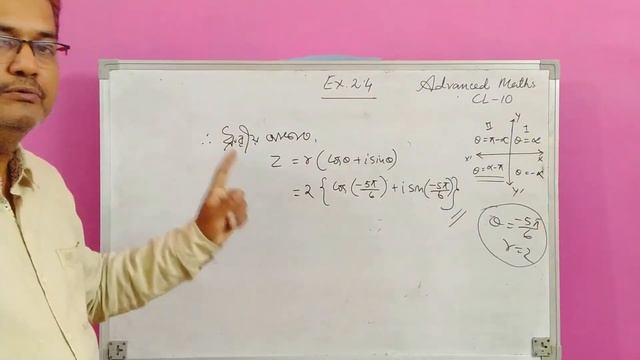 Ex. 2.4
Advanced Maths
CL-10
∴
Z = r (cosθ + i sinθ)
= 2 { cos (-5π/6) + i sin (-5π/6) }
Y
II I
θ = π-α θ = α
X' X
θ = α-π θ = -α
Y'
θ = -5π/6
r = 2